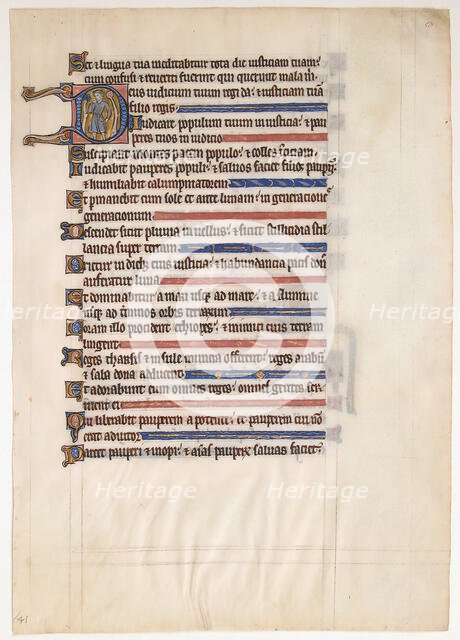 Set & lingua mea meditabitur tota die iusticiam tuam:
cum confusi & reveriti fuerint qui querunt mala m
Deus iudicium tuum regi da: & iusticiam tuā
filio regis.
Iudicare populum tuum in iusticia: & pau
peres tuos in iudicio
Suscipiant montes pacem populo: & colles iusticiam.
Iudicabit pauperes populi: & salvos faciet filios paupeꝝ
& humiliabit calumpniatorem.
Et pmanebit cum sole et ante lunam: in generacione
generacionum
Descendet sicut pluvia in vellus: & sicut stillicidia stil
lancia super terram.
Orietur in dieb; eius iusticia: & habundancia pacis don
auferatur luna
Et dominabitur a mari usq; ad mare: & a flumine
usq; ad t̄minos orbis terrarum
Coram illo procident ethiopes: & inimici eius terram
lingent
Reges tharsis & insule munera offerent: reges arabū
& saba dona adducent
Et adorabunt eum omnes reges: omnes gentes ser
vient ei
Quia liberabit pauperem a potente: & pauperem cui nō
erat adiutor
Parcet pauperi & inopi: & aīas pauperū salvas faciet:
41
Heritage
Heritage
Heritage
Heritage